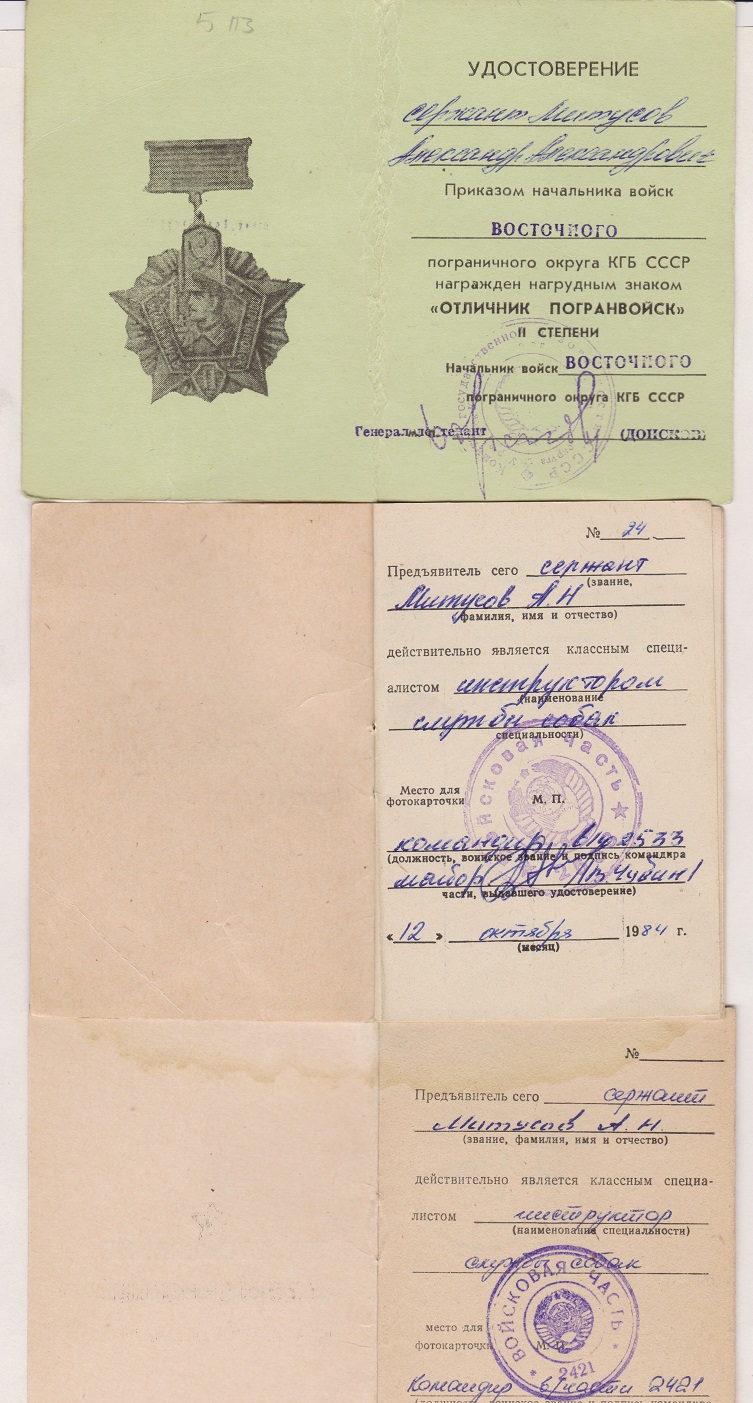 5 ПЗ
УДОСТОВЕРЕНИЕ
сержант Митусов
Александр Александрович
Приказом начальника войск
ВОСТОЧНОГО
пограничного округа КГБ СССР
награжден нагрудным знаком
«ОТЛИЧНИК ПОГРАНВОЙСК»
II СТЕПЕНИ
Начальник войск ВОСТОЧНОГО
пограничного округа КГБ СССР
Генерал-лейтенант (ДОНСКОВ)
№ 24
Предъявитель сего сержант
(звание,
Митусов А.Н
фамилия, имя и отчество)
действительно является классным специ-
алистом инструктором
(наименование
службы собак
специальности)
войсковая часть
Место для
фотокарточки
М. П.
командир в/ч 2533
(должность, воинское звание и подпись командира
майор /В Чубин/
части, выдавшего удостоверение)
«12» октября 1984 г.
(месяц)
№
Предъявитель сего сержант
Митусов А. Н.
(звание, фамилия, имя и отчество)
действительно является классным специа-
листом инструктор
(наименование специальности)
службы собак
ВОЙСКОВАЯ ЧАСТЬ
место для
фотокарточки
М. П.
2421
Командир в/части 2421